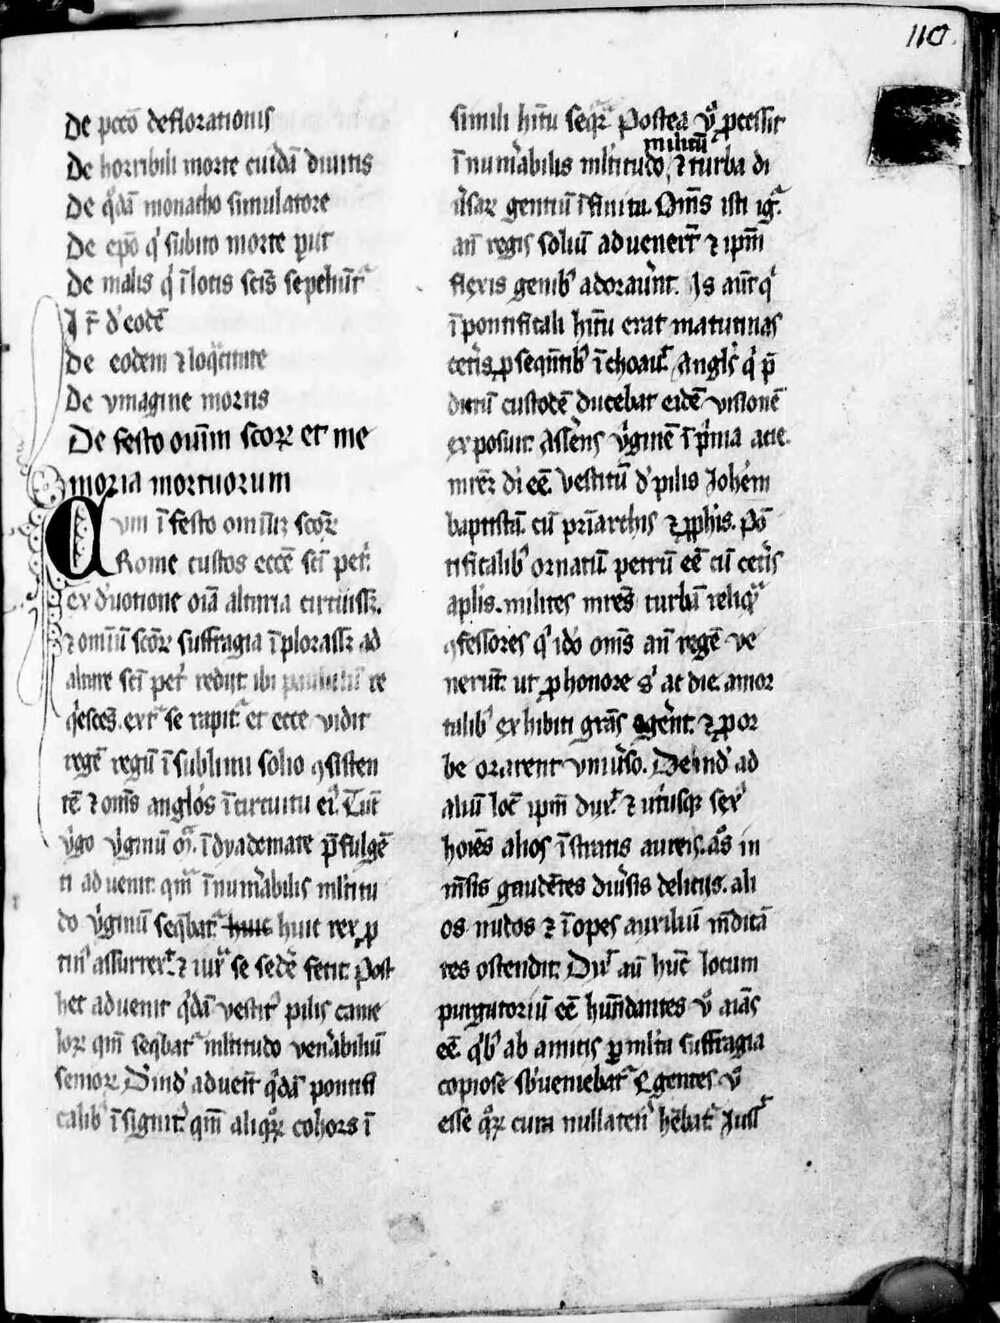 110
De pccō deflorationis
De horribili morte cuidā diuitis
De qͦdā monacho simulatore
De epō qͥ subito morte ꝑiit
De malis qͥ ī locis scīs sepeliūtᷣ
It̄ d' eodē
De eodem ⁊ loq̄citate
De ymagine mortis
De festo oīm scōꝝ et me
moria mortuorum
Cum ī festo omniū scōꝝ
Rome custos eccē scī petͥ
ex d'uotione oīa altaria circuissꝫ
⁊ omniū scōꝝ suffragia īplorassꝫ ad
altare scī petͥ redijt ibi paululū re
qͥescēs. extᷓ se rapitᷣ et ecce vidit
regē regū ī sublimi solio ꝯsisten
tē ⁊ om̄s anglos ī circuitu eiꝰ. Tūc
vͥgo vͥginū ī dyademate p̄fulgē
ti aduenit. quā īnum̄abilis ml̄titu
do vͥginū seqͤbatᷣ huic huic rex ꝓ
tinꝰ assurrex̄ ⁊ iuxᷓ se sedē fecit. Post
hec aduenit qͥdā vestitꝰ pilis came
loꝝ quē seqͤbatᷣ ml̄titudo ven̄abiliū
senioꝝ. Dīnd' aduēit qͥdā pontifi
calibꝰ īsignitꝰ quē aliquoꝝ cohors ī
simili hītu seqͥtᷣ. Postea vͦ ꝓcessit
īnum̄abilis ml̄titudo militū ⁊ turba di
uͥsaꝝ gentiū īfinita. Om̄s isti igᷣ
an̄ regis soliū aduenerūt ⁊ ipm̄
flexis genibꝰ adorauͥnt. Is aūt qͥ
ī pontificali hītu erat matutinas
cetͥis ꝓsequētibꝰ īchoauit. Anglꝰ qͥ p̄
dictū custodē ducebat eidē visionē
exposuit. Assͤens vͥginē ī pͥma acie
mr̄eꝫ dī eē. Vestitū d' pilis Iohēm
baptistā cū priārchis ⁊ ꝓphīs. Pō
tificalibꝰ ornatū petrū eē cū cetͥis
aplīs. milites mr̄es turbā reliqͣ
ꝯfessores qͥ iō om̄s an̄ regē ve
nerūt. ut ꝓ honore sͥ ac die. a mor
talibꝰ exhibiti grās agͤent. ⁊ ꝓ or
be orarent vniuͥso. Deind' ad
aliū locū ipm̄ duxͭ ⁊ utͥusqꝫ sexꝰ
hoīes alios ī stratis aureis. aͦs in
mēsis gaudētes diuͥsis delicijs. ali
os nudos ⁊ īopes auxiliū mēdicā
tes ostendit. Dixͭ aū hūc locum
purgatoriū eē habūdantes vͦ aīas
eē. qͥbꝰ ab amicis ꝑ ml̄ta suffragia
copiose sbͥueniebatᷣ. Egentes vͦ
esse qͦꝝ cura nullatenꝰ hēbatᷣ. Iussͭ